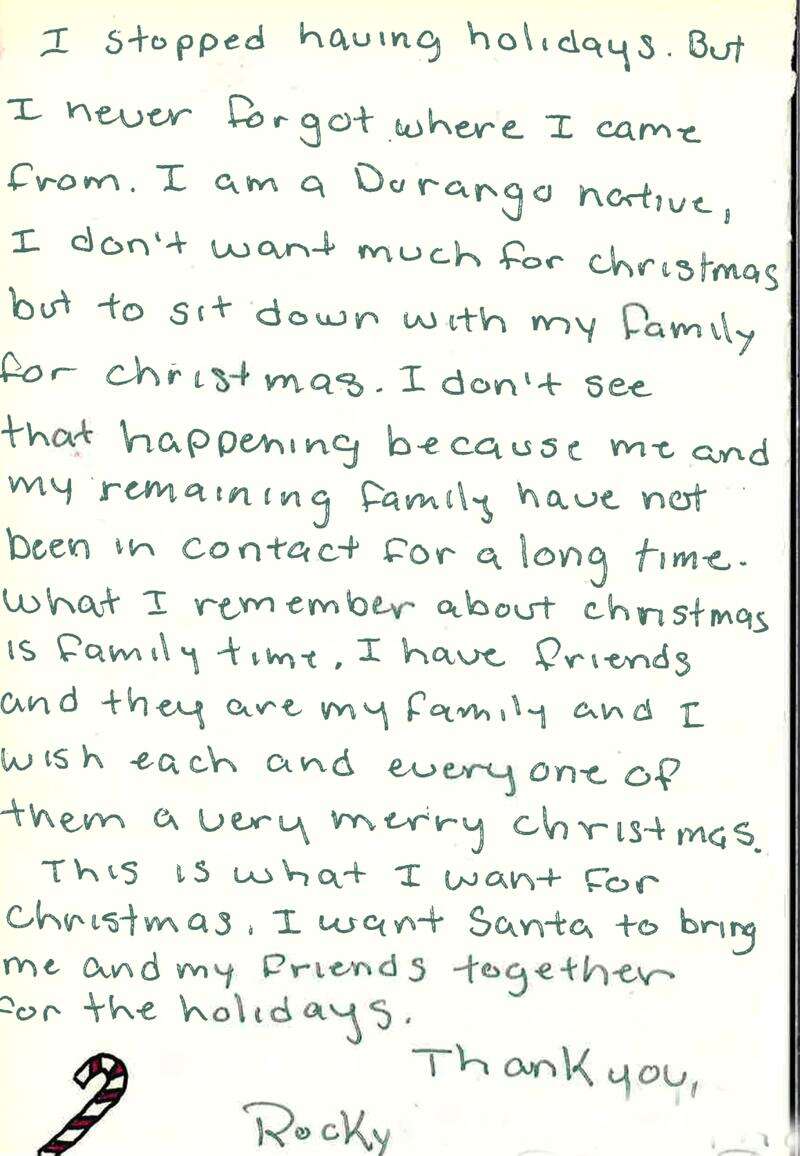 I stopped having holidays. But
I never forgot where I came
from. I am a Durango native,
I don't want much for christmas
but to sit down with my family
for christmas. I don't see
that happening because me and
my remaining family have not
been in contact for a long time.
What I remember about christmas
is family time. I have friends
and they are my family and I
wish each and everyone of
them a very merry christmas.
This is what I want for
christmas. I want Santa to bring
me and my friends together
for the holidays.
Thank you,
Rocky